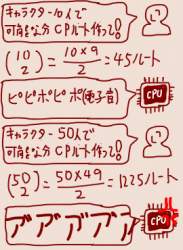 キャラクター10人で
可能な分 CPルート作って!
(10 2) = 10×9/2 = 45ルート
ピピポピポ(電子音)
CPU
キャラクター50人で
可能な分 CPルート作って!
(50 2) = 50×49/2 = 1225ルート
アアアアア
CPU